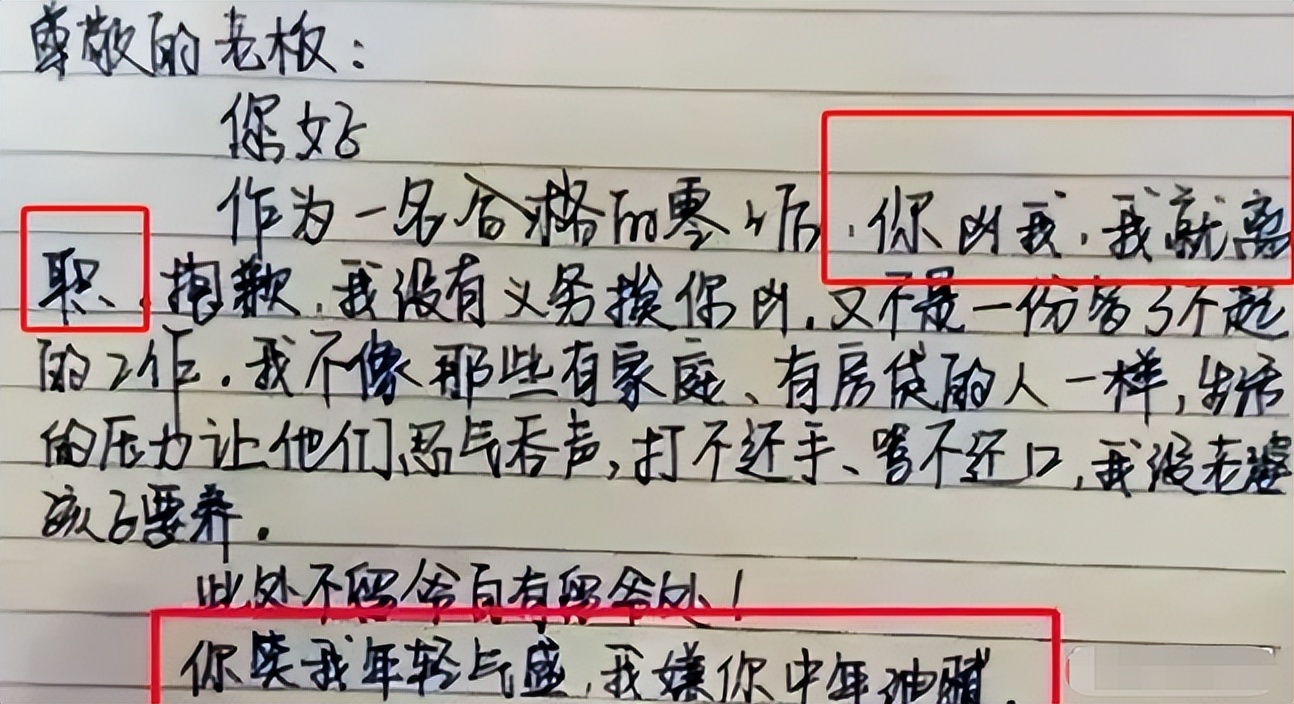 尊敬的老板：
您好
作为一名合格的零零后，你凶我，我就离
职、抱歉，我没有义务挨你凶，又不是一份多了不起
的工作。我不像那些有家庭、有房贷的人一样，生活
的压力让他们忍气吞声，打不还手、骂不还口，我没老婆
孩子要养。
此处不留爷自有留爷处！
你笑我年轻气盛，我嫌你中年油腻。